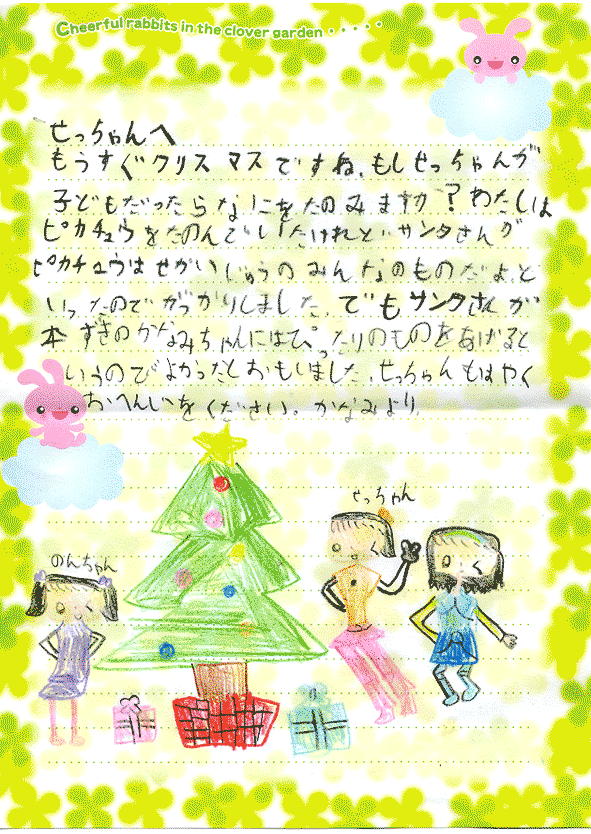 Cheerful rabbits in the clover garden・・・・・
せっちゃんへ
もうすぐクリスマスですね、もしせっちゃんが
子どもだったらなにをたのみますか？わたしは
ピカチュウをたのんでいたけれどサンタさんが
ピカチュウはせかいじゅうのみんなのものだよ、と
いったのでがっかりしました、でもサンタさんが
本ずきのかなみちゃんにはぴったりのものをあげると
いうのでよかったとおもいました、せっちゃんもはやく
おへんじをください。かなみより
せっちゃん
のんちゃん